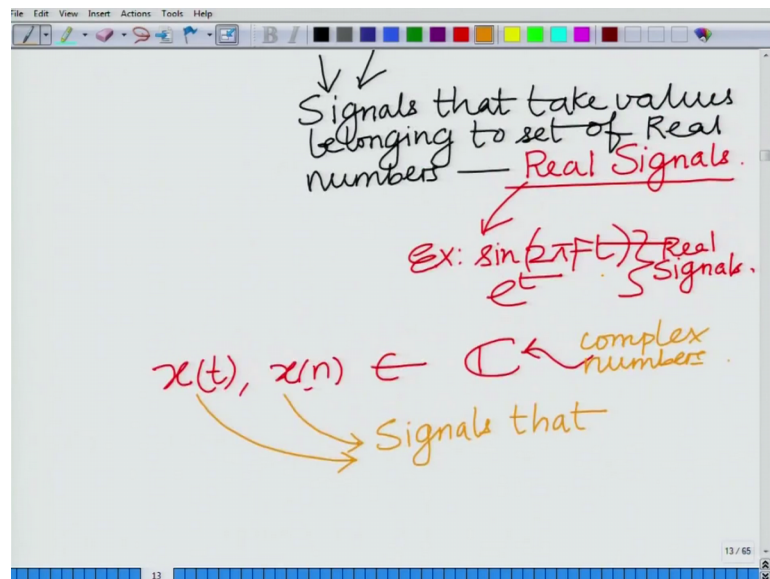 File Edit View Insert Actions Tools Help
Signals that take values
belonging to set of Real
numbers — Real Signals.
Ex: sin(2πFt) } Real
e^t } Signals.
x(t), x(n) ∈ ℂ ← complex
numbers.
Signals that
13 / 65
13